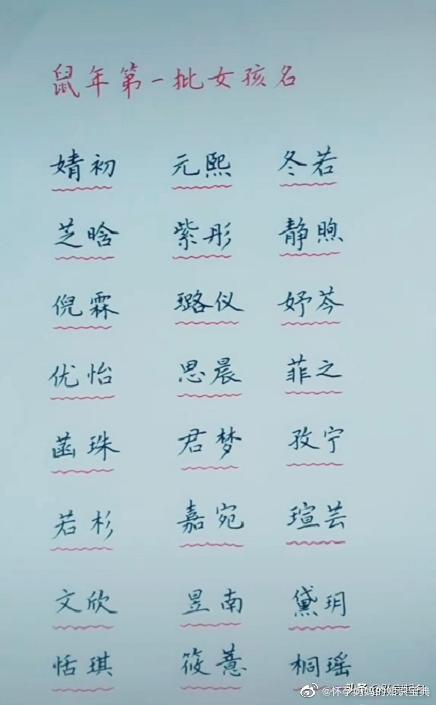 鼠年第一批女孩名
婧初 元熙 冬若
芝晗 紫彤 静煦
倪霖 璐仪 妤芩
优怡 思晨 菲之
菡珠 君梦 孜宁
若杉 嘉宛 瑄芸
文欣 昱南 黛玥
恬琪 筱薏 桐瑶
头条
@怀孕妈妈的知识宝典